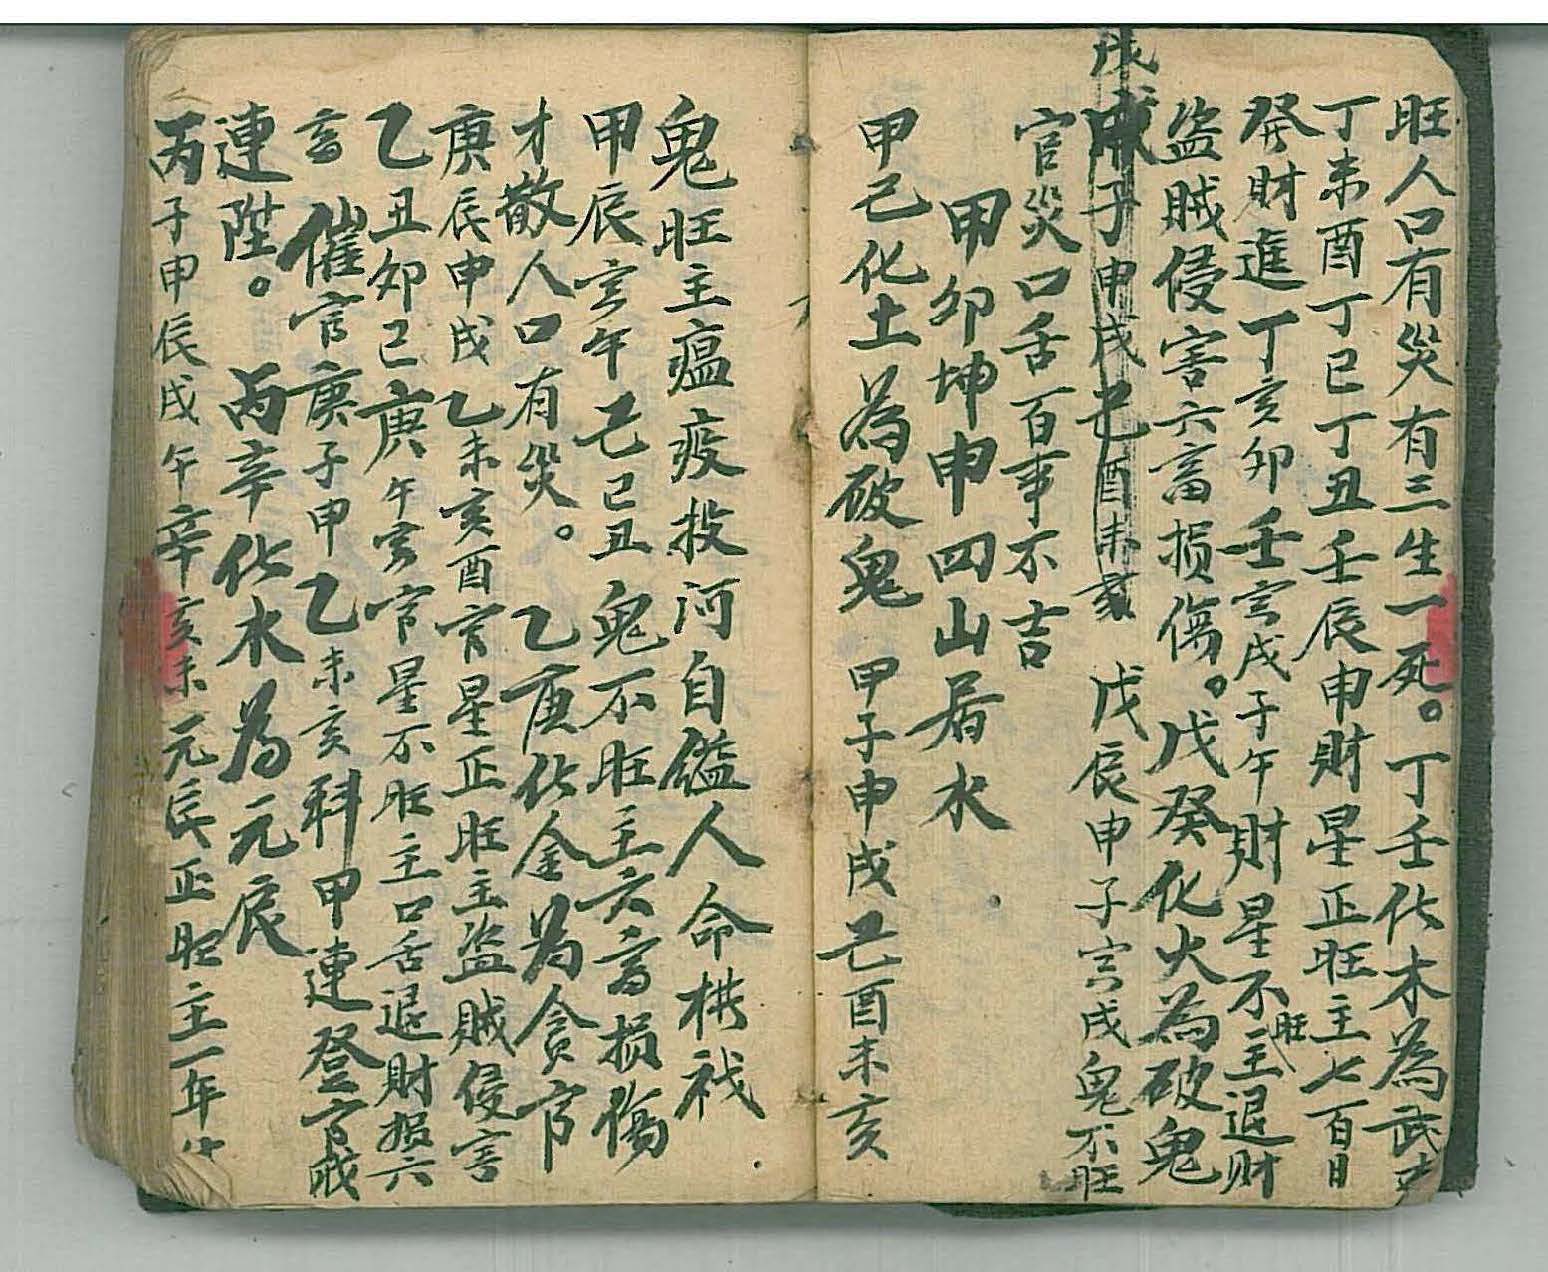 旺人口有災有三生一死。丁壬化木為武
丁未酉丁巳丁丑壬辰申財星正旺主七百日
發財進丁亥卯壬寅戌子午財星不旺主退財
盜賊侵害六畜損傷。戊癸化火為破鬼
戊子申戌己酉未亥 戊辰申子寅戌鬼不旺
官災口舌百事不吉
甲卯坤申四山居水
甲己化土為破鬼 甲子申戌己酉未亥
鬼旺主瘟疫投河自縊人命
甲辰寅午己巳丑鬼不旺主六畜損傷
才散人口有災。 乙庚化金為貪官
庚辰申戌乙未亥酉官星正旺主盜賊侵害
乙丑卯巳庚午寅官星不旺主口舌退財損六
畜 催官庚子甲乙未亥科甲連登官戒
連陞。 丙辛化水為元辰
丙子申辰戌午辛亥未元辰正旺主一年